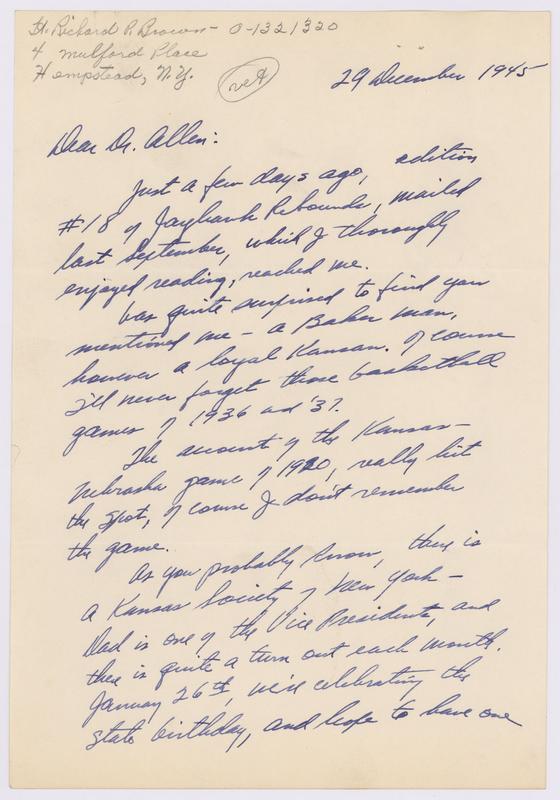 Lt. Richard P. Brown - O-1321320
4 Mulford Place
Hempstead, N.Y.
vet
29 December 1945
Dear Dr. Allen:
Just a few days ago, edition
#18 of Jayhawk Rebounds, mailed
last September, which I thoroughly
enjoyed reading, reached me.
Was quite surprised to find you
mentioned me - a Baker man,
however a loyal Kansan. Of course
I'll never forget those basketball
games of 1936 and '37.
The account of the Kansas-
Nebraska game of 1920, really hit
the spot, of course I don't remember
the game.
As you probably know, there is
a Kansas Society of New York -
Dad is one of the Vice Presidents, and
there is quite a turn out each month.
January 26th, we're celebrating the
state birthday, and hope to have one